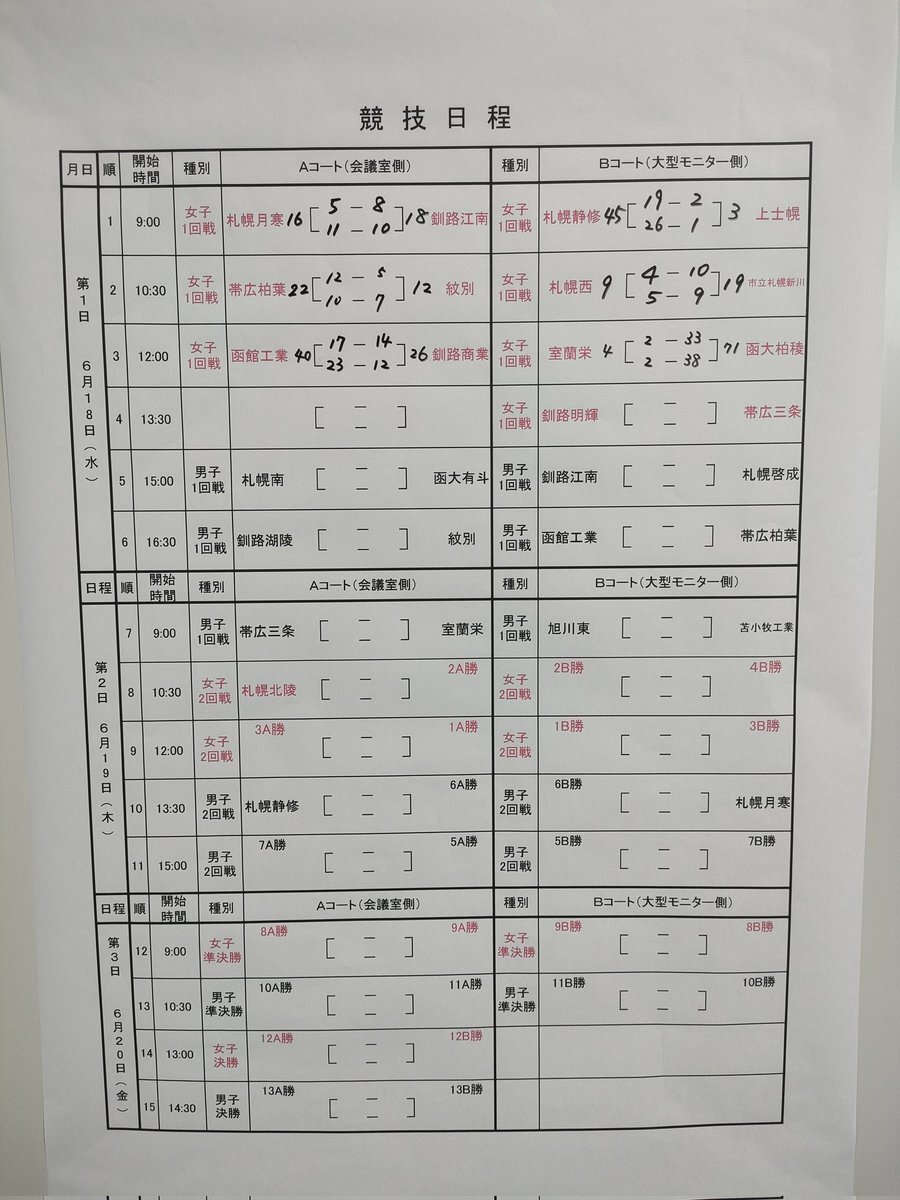 競技日程
月日 順 開始時間 種別 Aコート(会議室側) 種別 Bコート(大型モニター側)
第1日 6月18日(水)
1 9:00 女子1回戦 札幌月寒 16 [ 5 - 8 11 - 10 ] 18 釧路江南 女子1回戦 札幌静修 45 [ 19 - 2 26 - 1 ] 3 上士幌
2 10:30 女子1回戦 帯広柏葉 22 [ 12 - 5 10 - 7 ] 12 紋別 女子1回戦 札幌西 9 [ 4 - 10 5 - 9 ] 19 市立札幌新川
3 12:00 女子1回戦 函館工業 40 [ 17 - 14 23 - 12 ] 26 釧路商業 女子1回戦 室蘭栄 4 [ 2 - 33 2 - 38 ] 71 函大柏稜
4 13:30 [ - - ] 女子1回戦 釧路明輝 [ - - ] 帯広三条
5 15:00 男子1回戦 札幌南 [ - - ] 函大有斗 男子1回戦 釧路江南 [ - - ] 札幌啓成
6 16:30 男子1回戦 釧路湖陵 [ - - ] 紋別 男子1回戦 函館工業 [ - - ] 帯広柏葉
日程 順 開始時間 種別 Aコート(会議室側) 種別 Bコート(大型モニター側)
第2日 6月19日(木)
7 9:00 男子1回戦 帯広三条 [ - - ] 室蘭栄 男子1回戦 旭川東 [ - - ] 苫小牧工業
8 10:30 女子2回戦 札幌北陵 [ - - ] 2A勝 女子2回戦 2B勝 [ - - ] 4B勝
9 12:00 女子2回戦 3A勝 [ - - ] 1A勝 女子2回戦 1B勝 [ - - ] 3B勝
10 13:30 男子2回戦 札幌静修 [ - - ] 6A勝 男子2回戦 6B勝 [ - - ] 札幌月寒
11 15:00 男子2回戦 7A勝 [ - - ] 5A勝 男子2回戦 5B勝 [ - - ] 7B勝
日程 順 開始時間 種別 Aコート(会議室側) 種別 Bコート(大型モニター側)
第3日 6月20日(金)
12 9:00 女子準決勝 8A勝 [ - - ] 9A勝 女子準決勝 9B勝 [ - - ] 8B勝
13 10:30 男子準決勝 10A勝 [ - - ] 11A勝 男子準決勝 11B勝 [ - - ] 10B勝
14 13:00 女子決勝 12A勝 [ - - ] 12B勝
15 14:30 男子決勝 13A勝 [ - - ] 13B勝